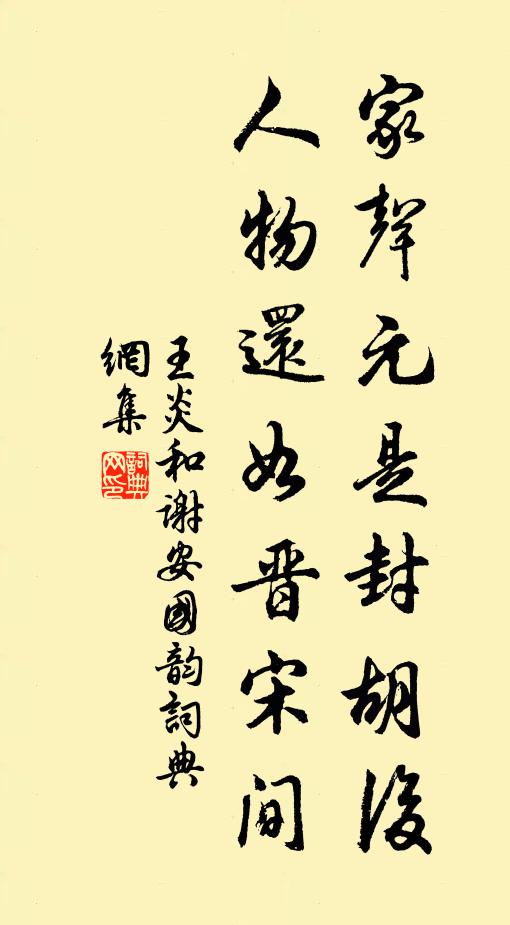 家聲元是封胡後
人物還如晋宋间
王炎和谢安國韵詞典
網集
詞典
网印